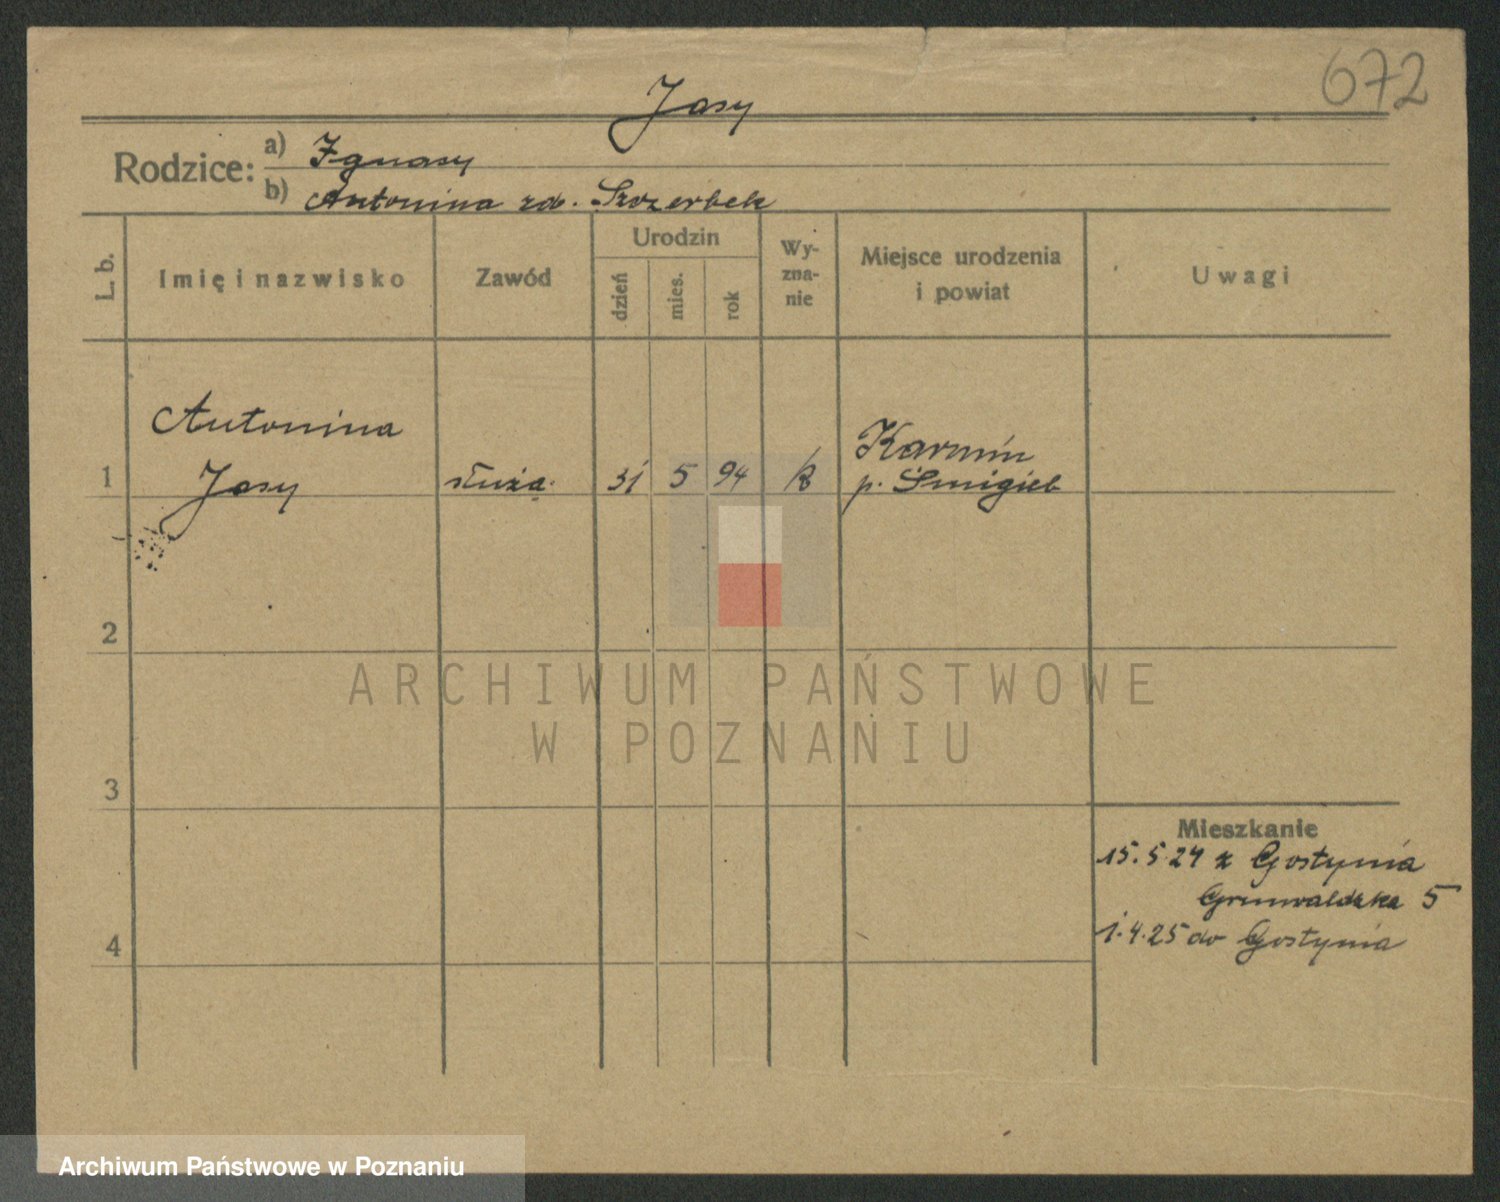 672
Jasy
Rodzice:
a) Ignasy
b) Antonina zd. Szczerbek
L. b.
Imię i nazwisko
Zawód
Urodzin
dzień
mies.
rok
Wy-
zna-
nie
Miejsce urodzenia
i powiat
Uwagi
Antonina
1 Jasy służą. 31 5 94 k
Karmin
p. Śmigiel
2
3
4
Mieszkanie
15.5.24 z Gostynia
Grunwaldzka 5
1.4.25 do Gostynia
ARCHIWUM PAŃSTWOWE
W POZNANIU
Archiwum Państwowe w Poznaniu